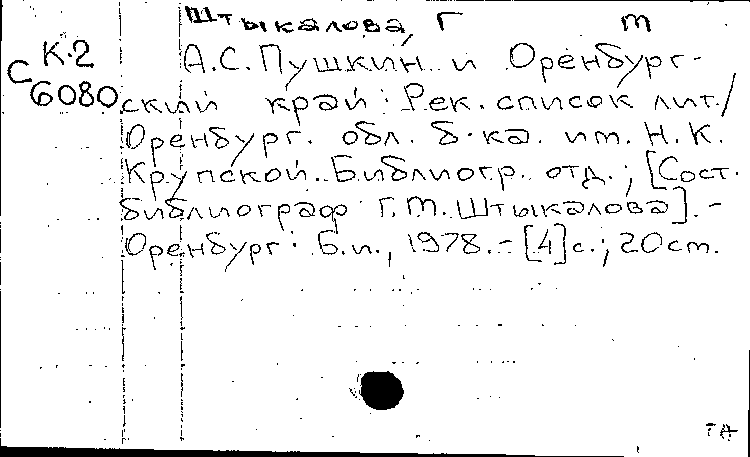 Штыкалова, Г М
К-2
С 6080
А.С. Пушкин и Оренбург-
ский край : Рек. список лит./
Оренбург. обл. б-ка. им. Н.К.
Крупской. Библиогр. отд. ; [Сост.
библиограф Г.М. Штыкалова]. -
Оренбург : Б.и., 1978. - [4] с. ; 20 см.
ТА